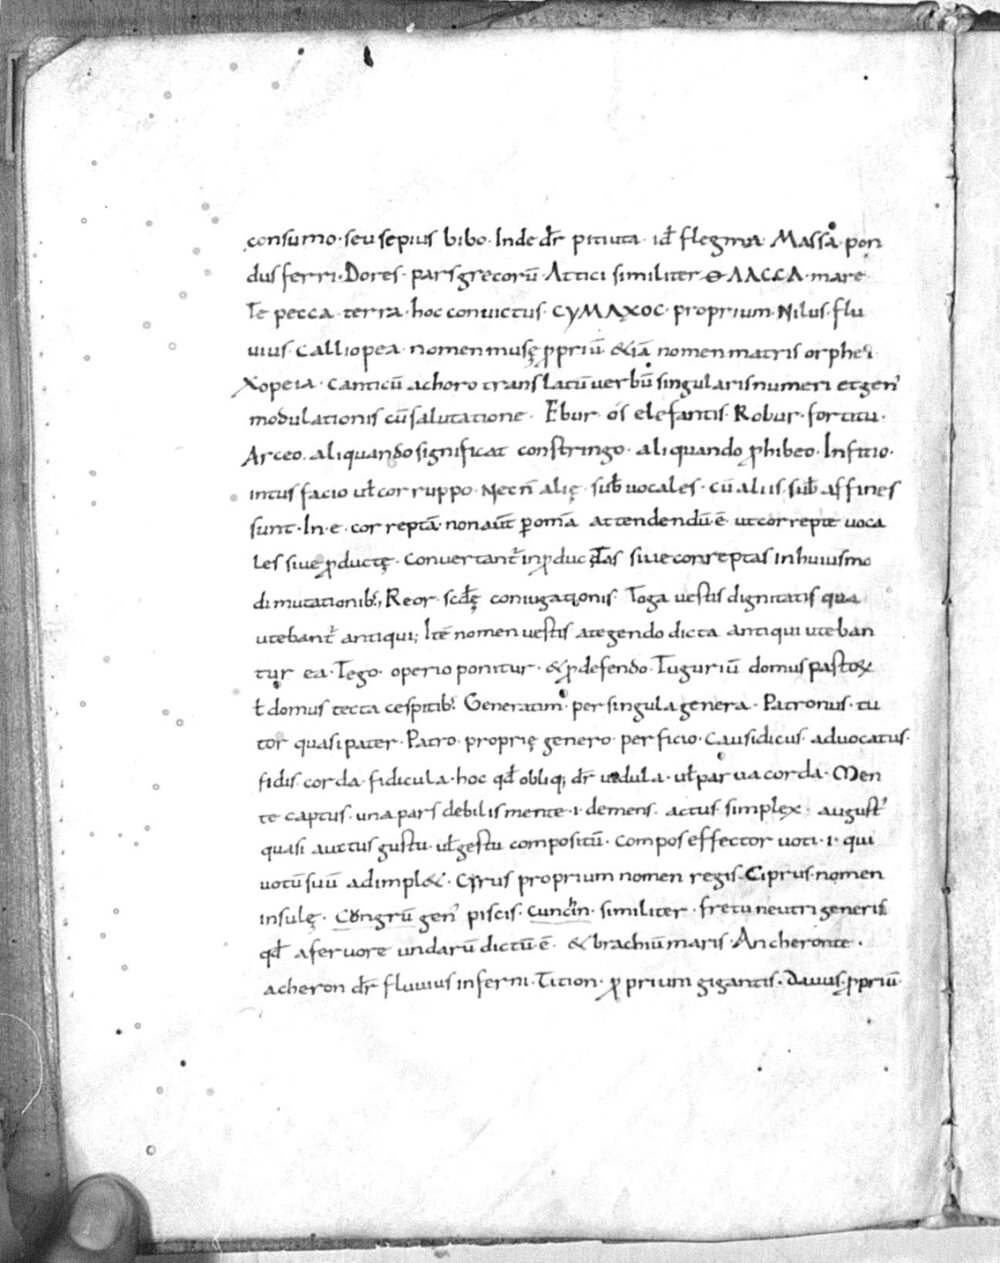 consumo · seu sepius bibo · Inde dr̄ pituita · id̄ flegma · Massa · pon
dus ferri · Dores · pars grecorū · Attici similiter ΘΑΛΑССΑ · mare ·
Te pecca · terra · hoc convictus · CYMAXOC · proprium · Nilus · flu
uius · Calliopea · nomen musę ꝓpriū · & iā nomen matris orphei
Xopeia · canticū a choro translatū uerbū singularis numeri et gen̄
modulationis cū salutatione · Ebur · os elefantis · Robur · fortitu ·
Arceo · aliquando significat constringo · aliquando ꝓhibeo · Infitio ·
intus facio ul̄ corruppo · Necn̄ alię · sub̄ uocales · cū aliis sub̄ affines
sunt · In · e · correptā · non aūt ꝑ omā attendendū ē · ut correpte uoca
les siue ꝓductę · Conuertant̄ in ꝓductas siue correptas in huiusmo
di mutationib; Reor · scd̄ę coniugationis · Toga uestis dignitatis qua
utebant̄ antiqui; Itē nomen uestis a tegendo dicta antiqui uteban
tur ea · Tego · operio ponitur · & ꝓ defendo · Tuguriū domus pastoꝝ
ł domus tecta cespitib; Generatim · per singula genera · Patronus · tu
tor quasi pater · Patro · proprię genero · perficio · Causidicus · aduocatus ·
fidis · corda · fidicula · hoc qd̄ obliq; dr̄ uidula · ul̄ parua corda · Men
te captus · una pars debilis mente · i · demens · actus · simplex · august̄
quasi auctus gustu · ul̄ gestu compositū · Compos effector uoti · i · qui
uotū suū adimpl& · Cyrus proprium nomen regis · Ciprus · nomen
insulę · Congrū gen̄ piscis · Cunch̄in · similiter · fretū neutri generis
qd̄ a feruore undarū dictū ē · & brachiū maris · Ancheronte ·
acheron dr̄ fluuius inferni · Tition · ꝓprium gigantis · Dauus · ꝓpriū ·